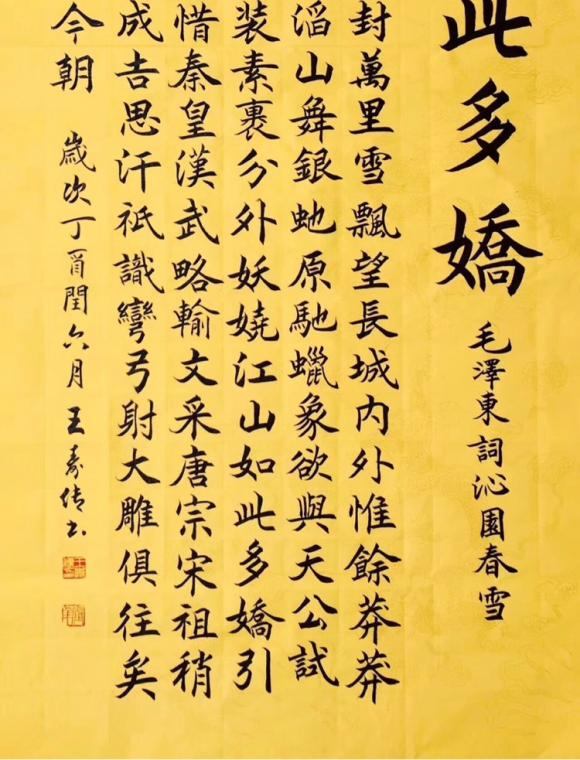 此多嬌
毛澤東詞沁園春雪
封萬里雪飄望長城内外惟餘莽莽
滔山舞銀虵原馳蠟象欲與天公試
裝素裹分外妖嬈江山如此多嬌引
惜秦皇漢武略輸文采唐宗宋祖稍
成吉思汗祇識彎弓射大雕俱往矣
今朝
歲次丁酉閏六月王壽